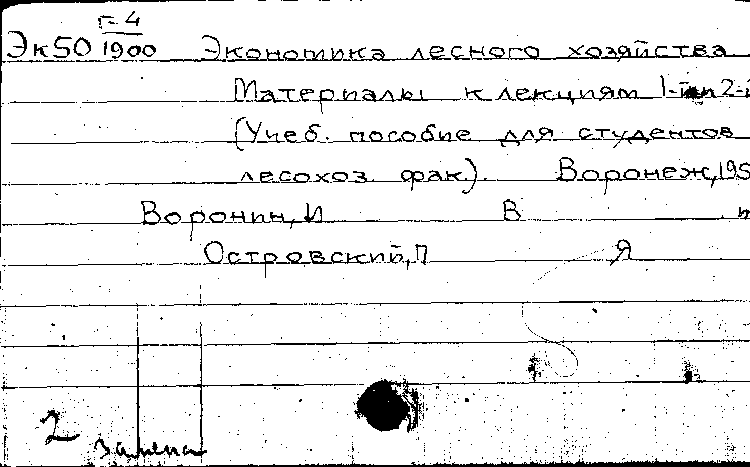 г-4
Эк50 1900 Экономика лесного хозяйства
Материалы к лекциям 1-й и 2-й
(Учеб. пособие для студентов
лесохоз. фак.). Воронеж, 195
Воронин, И В и
Островский, П Я
2 замена